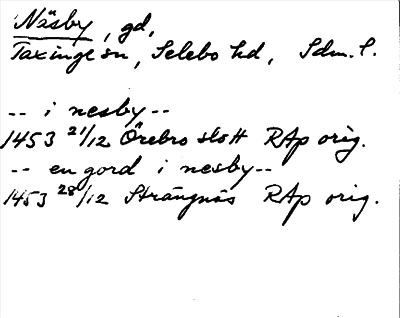 Näsby, gd,
Taxinge sn, Selebo hd, Sdm. l.
-- i nesby--
1453 21/12 Örebro slott RAp orig.
-- en gord i nesby--
1453 28/12 Strängnäs RAp orig.